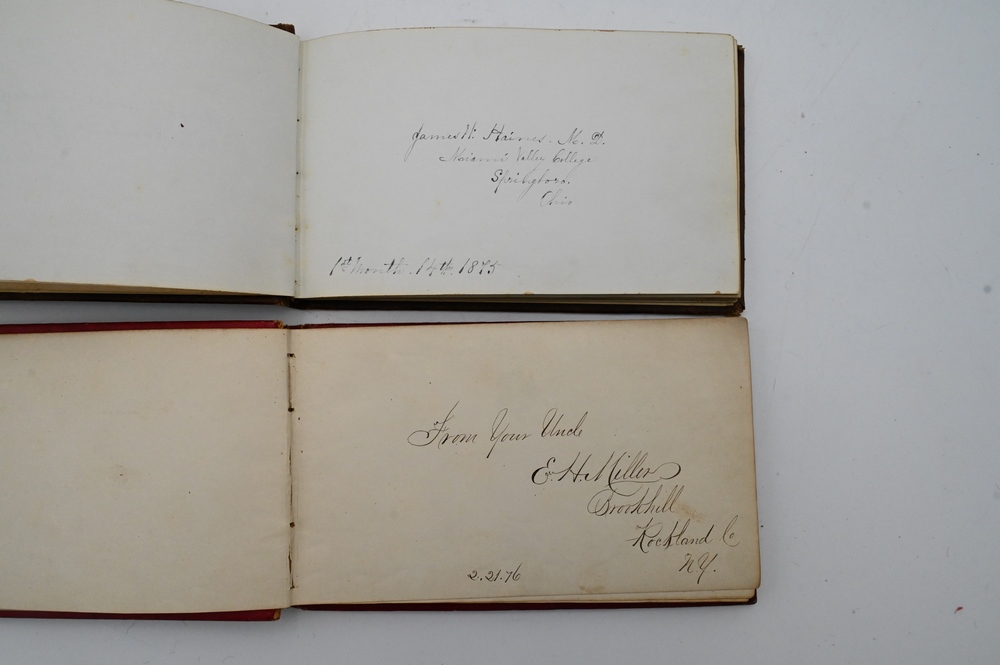 James W. Haines. M. D.
Miami Valley College
Springboro.
Ohio
1st Month. 14th. 1875
From Your Uncle
E. H. Miller
Brookhill
Rockland Co
NY.
2.21.76